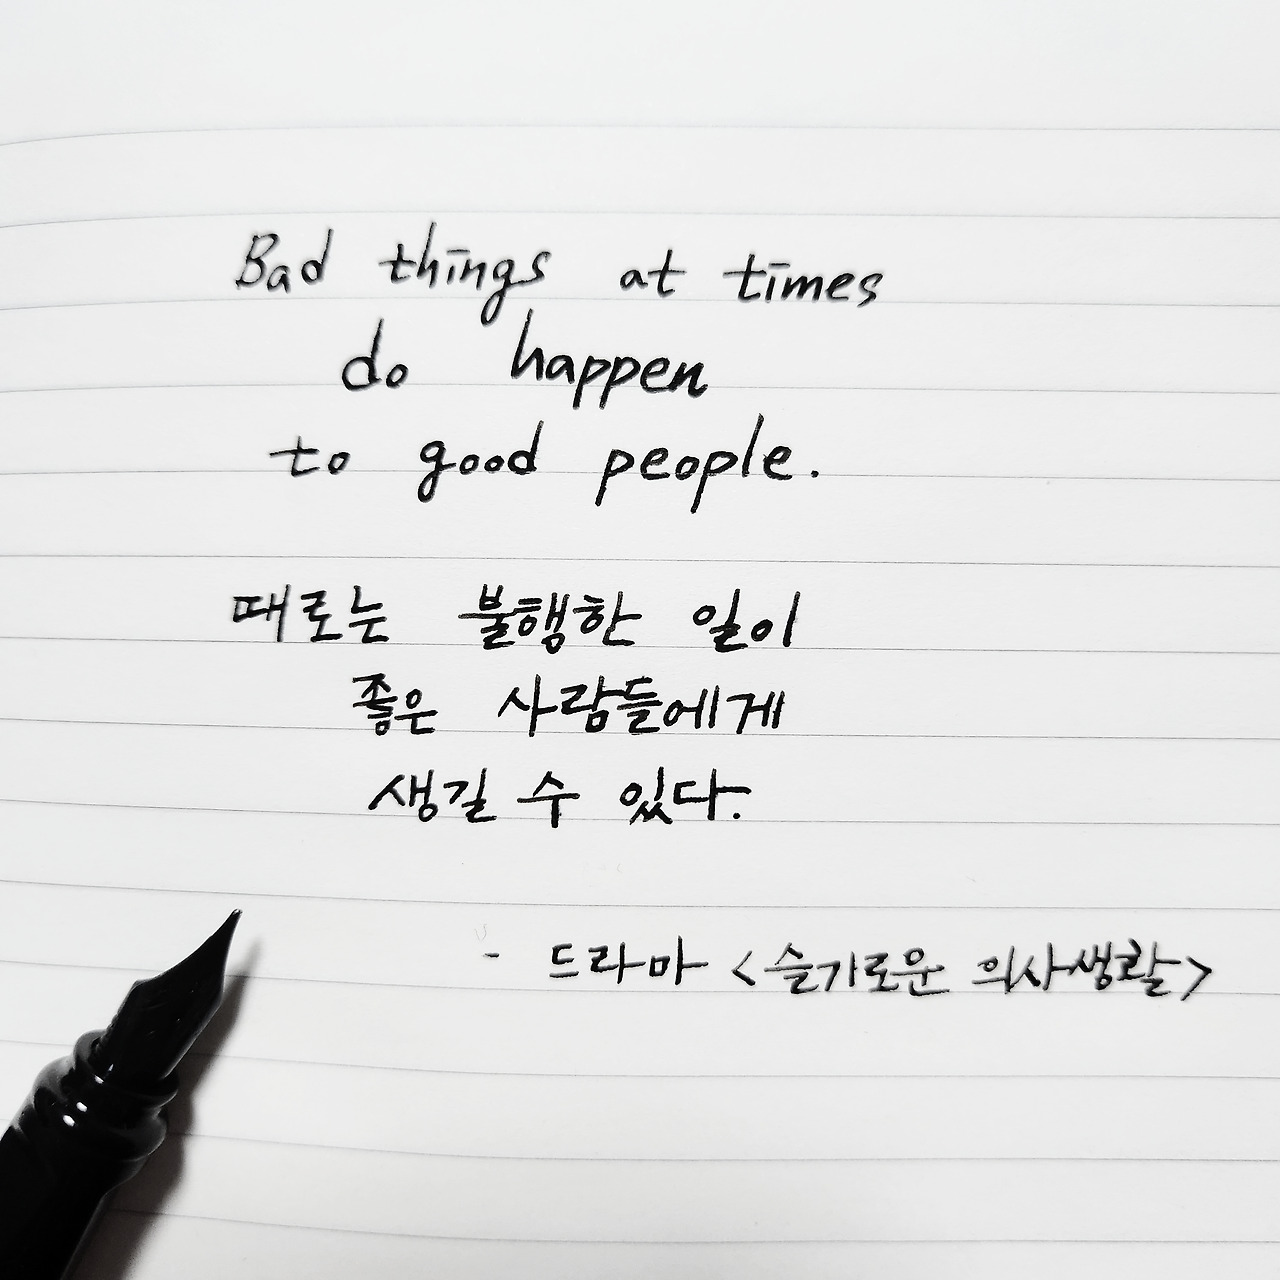 Bad things at times
do happen
to good people.
때로는 불행한 일이
좋은 사람들에게
생길 수 있다.
- 드라마 <슬기로운 의사생활>